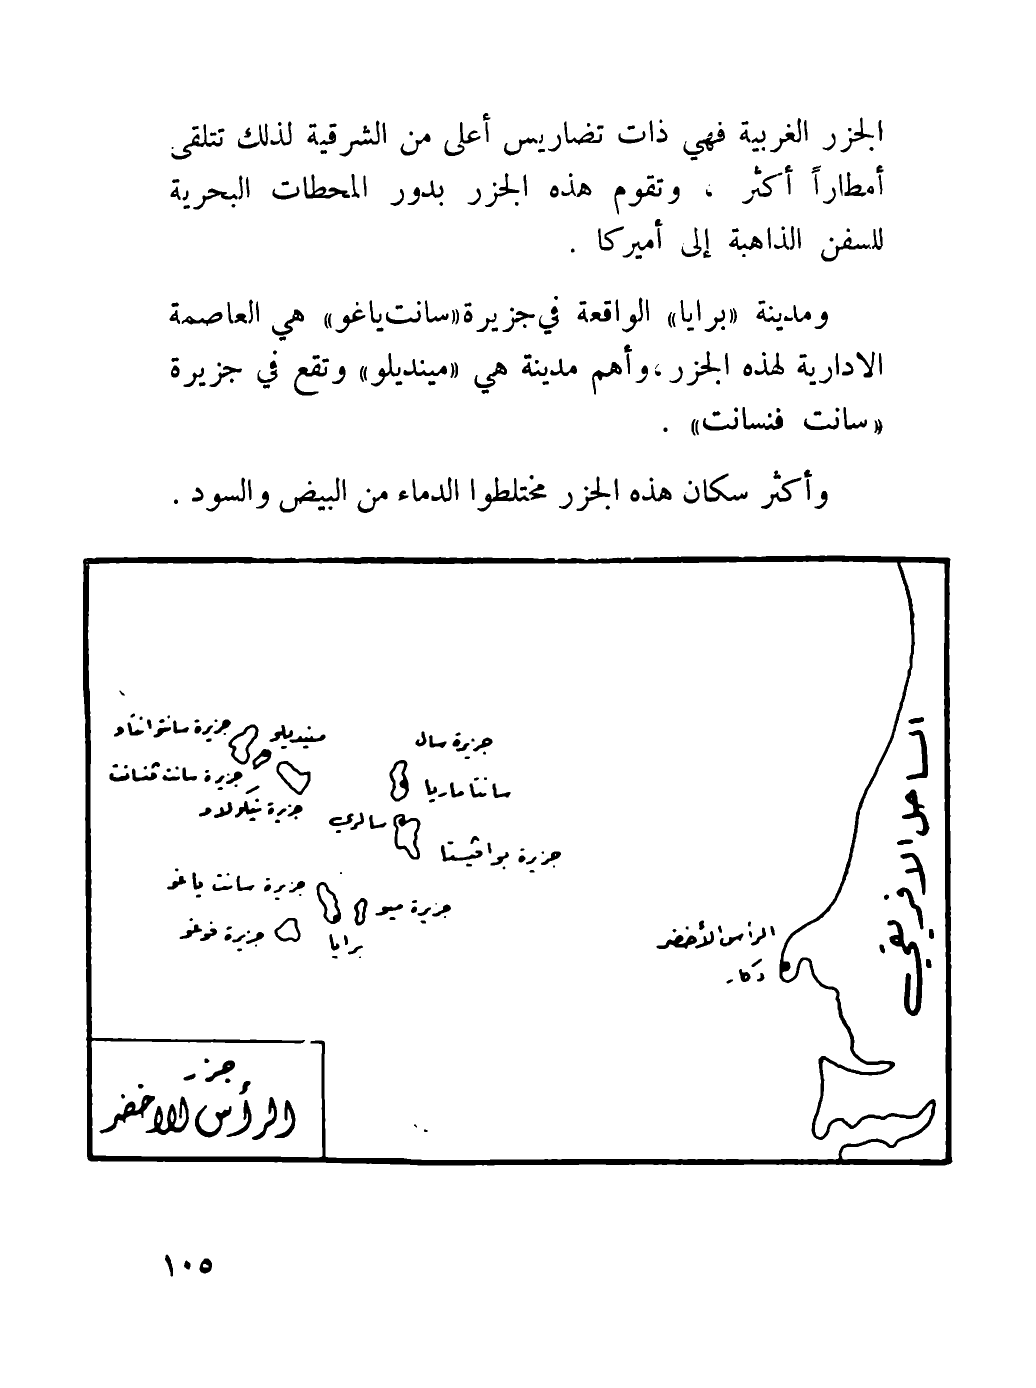 الجزر الغربية فهي ذات تضاريس أعلى من الشرقية لذلك تتلقى
أمطاراً أكثر ، وتقوم هذه الجزر بدور المحطات البحرية
للسفن الذاهبة إلى أميركا .
ومدينة «برايا» الواقعة في جزيرة «سانت ياغو» هي العاصمة
الادارية لهذه الجزر ، وأهم مدينة هي «مينديلو» وتقع في جزيرة
«سانت فنسانت» .
وأكثر سكان هذه الجزر مختلطوا الدماء من البيض والسود .
جزيرة سانتو انتاو
مينديلو
جزيرة سال
جزيرة سانت فنسانت
سانتا ماريا
جزيرة نيكولاو
سالري
جزيرة بوافيستا
جزيرة سانت ياغو
جزيرة ميو
جزيرة فوغو
برايا
الرأس الأخضر
دكار
الساحل الافريقي
جزر
الرأس الاخضر
١٠٥